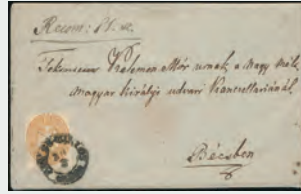 Recom:
Tekintetes Kelemen Mór urnak, a nagy mélt.
magyar királyi udvari Kancellariánál.
Bécsben